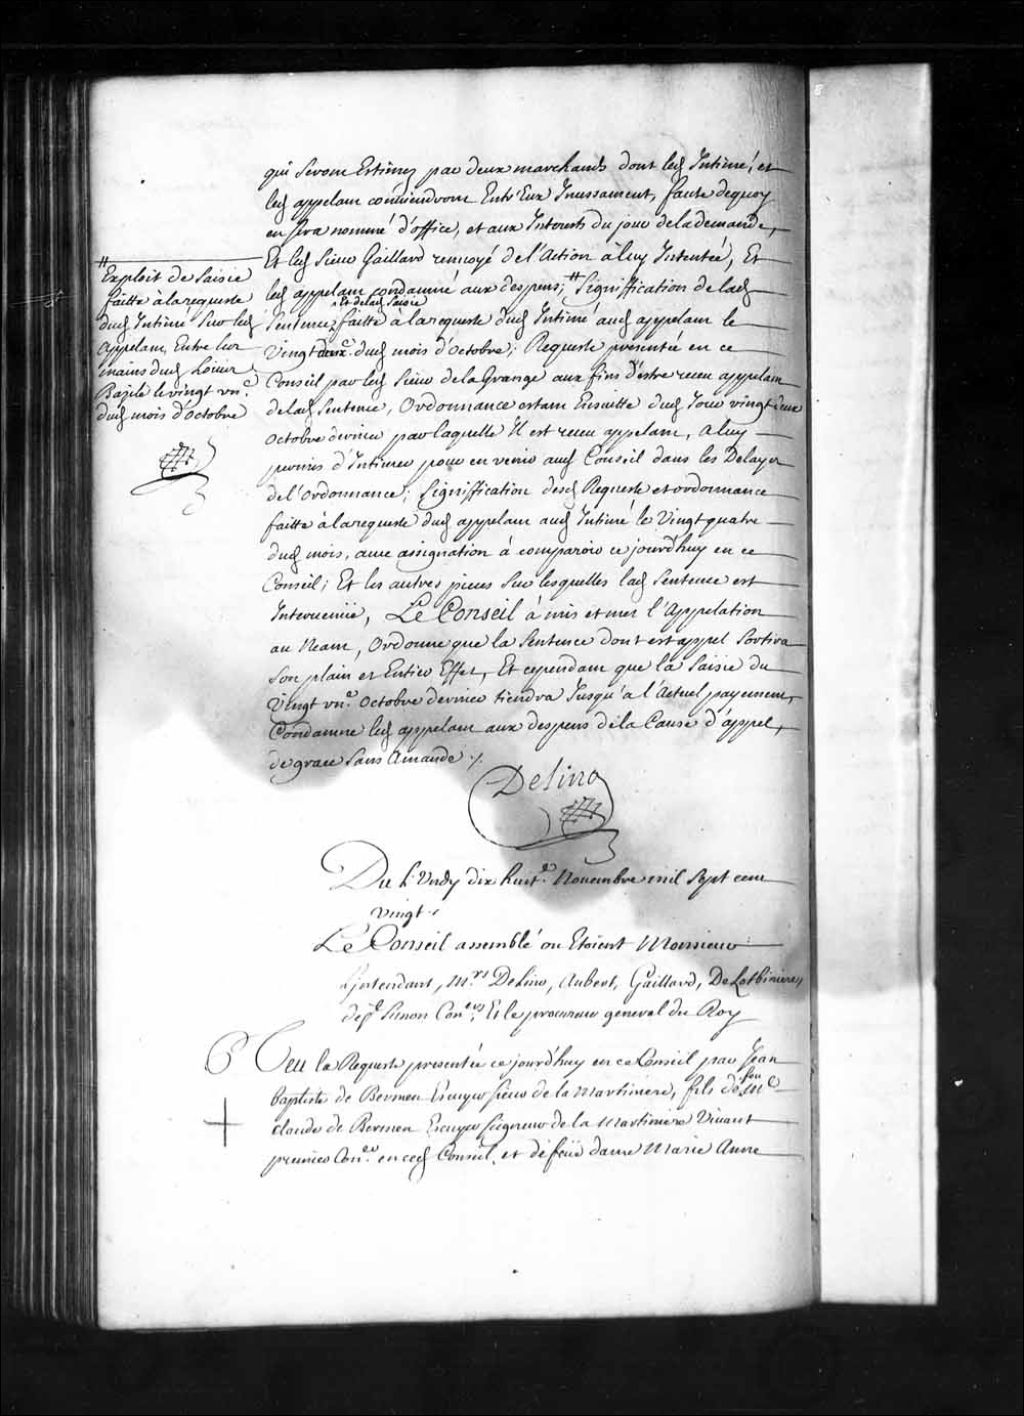 qui seront Estimez par deux marchands dont led. Intimé, et
led. appelant conviendront Entr'Eux Incessament, faute dequoy
en sera nommé d'office, et aux Interests du jour delademande,
Et led. Sieur Gaillard renvoyé de l'Action àluy Intentée, Et
led. appelant condamné aux despens; # Signiffication delad.
Sentence, ^Et delad. Saisie faitte àlarequeste dud. Intimé aud. appelant le
Vingt deux.e dud. mois d'Octobre; Requeste presentée en ce
Conseil par led. Sieur dela Grange aux fins d'estre receu appelant
delad. Sentence, Ordonnance estant Ensuitte dud. Jour vingt deux
Octobre dernier par laquelle Il est receu appelant, a luy
permis d'Intimer pour en venir aud. Conseil dans les Delays
de l'ordonnance; Signiffication desd. Requeste et ordonnance
faitte àlarequeste dud. appelant aud. Intimé le Vingt quatre
dud. mois, avec assignation à comparoir ce jourd'huy en ce
Conseil; Et les autres pieces sur lesquelles lad. Sentence est
Intervenüe, Le Conseil à mis et met l'Appelation
au Neant, Ordonne que la Sentence dont est appel Sortira
Son plain et Entier Effet, Et cependant que la Saisie du
Vingt vn.e Octobre dernier tiendra Jusqu'a l'Actuel payement,
Condamne led. appelant aux despens de la Cause d'appel,
de grace Sans Amande ./.
Delino
# Exploit de Saisie
faitte àlarequeste
dud. Intimé Sur led.
Appelant, Entre les
mains dud.
Bazile le vingt vn.e
dud. mois d'octobre
Du Lundy dix huit.e Novembre mil Sept cent
vingt ./
Le Conseil assemblé ou Etoient Monsieur
L'Intendant, M.rs Delino, Aubert, Gaillard, De Lotbiniere,
Simon Con.ers, Et le procureur general du Roy
Veu la Requeste presentée ce jourd'huy en ce Conseil par Jean
baptiste de Bermen Escuyer Sieur de la Martiniere, fils de ^feu M.e
claude de Bermen Escuyer Seigneur de la Martiniere Vivant
premier Con.er en ced. Conseil, et de feüe dame Marie Anne